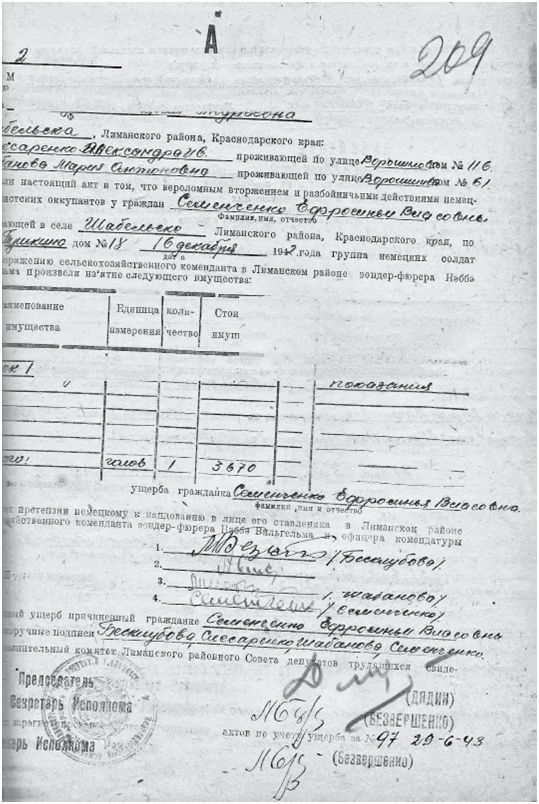 А
209
2
М
бельска, Лиманского района, Краснодарского края:
ссаренко Александра Ив. проживающей по улице Ворошилова дом № 116.
банова Мария Антоновна проживающей по улице Ворошилова № 61
ли настоящий акт в том, что вероломным вторжением и разбойничьими действиями немец-
истских оккупантов у граждан Семенченко Ефросиньи Власовны
Фамилия, имя, отчество
ающей в селе Шабельско – Лиманского района, Краснодарского края, по
Пушкина дом № 18 16 декабря 1942 года группа немецких солдат
дата
оряжению сельскохозяйственного коменданта в Лиманском районе зондер-фюрера Нэбба
произвели из'ятие следующего имущества:
аименование Единица коли- Стои
имущества измерения чество имущ
ок 1
показания
ого: голов 1 3670
ущерба гражданка Семенченко Ефросинья Власовна.
фамилия, имя и отчество
ет претензии немецкому к мандованию в лице его ставленника в Лиманском районе
яйственного коменданта зондер-фюрера Нэбба Вильгельма и офицера комендатуры
1. (Бесклубова)
2.
3. (Шабанова)
4. (Семенченко)
ный ущерб причиненный гражданке Семенченко Ефросиньи Власовны
норучные подписи Бесклубова, Слесаренко, Шабанова, Семенченко.
олнительный комитет Лиманского районного Совета депутатов трудящихся свиде-
Председатель
(ДЯДИН)
Секретарь Исполкома
(БЕЗВЕРШЕНКО)
актов по учету ущерба за № 97 29-6-43
арь Исполкома
(Безвершенко)